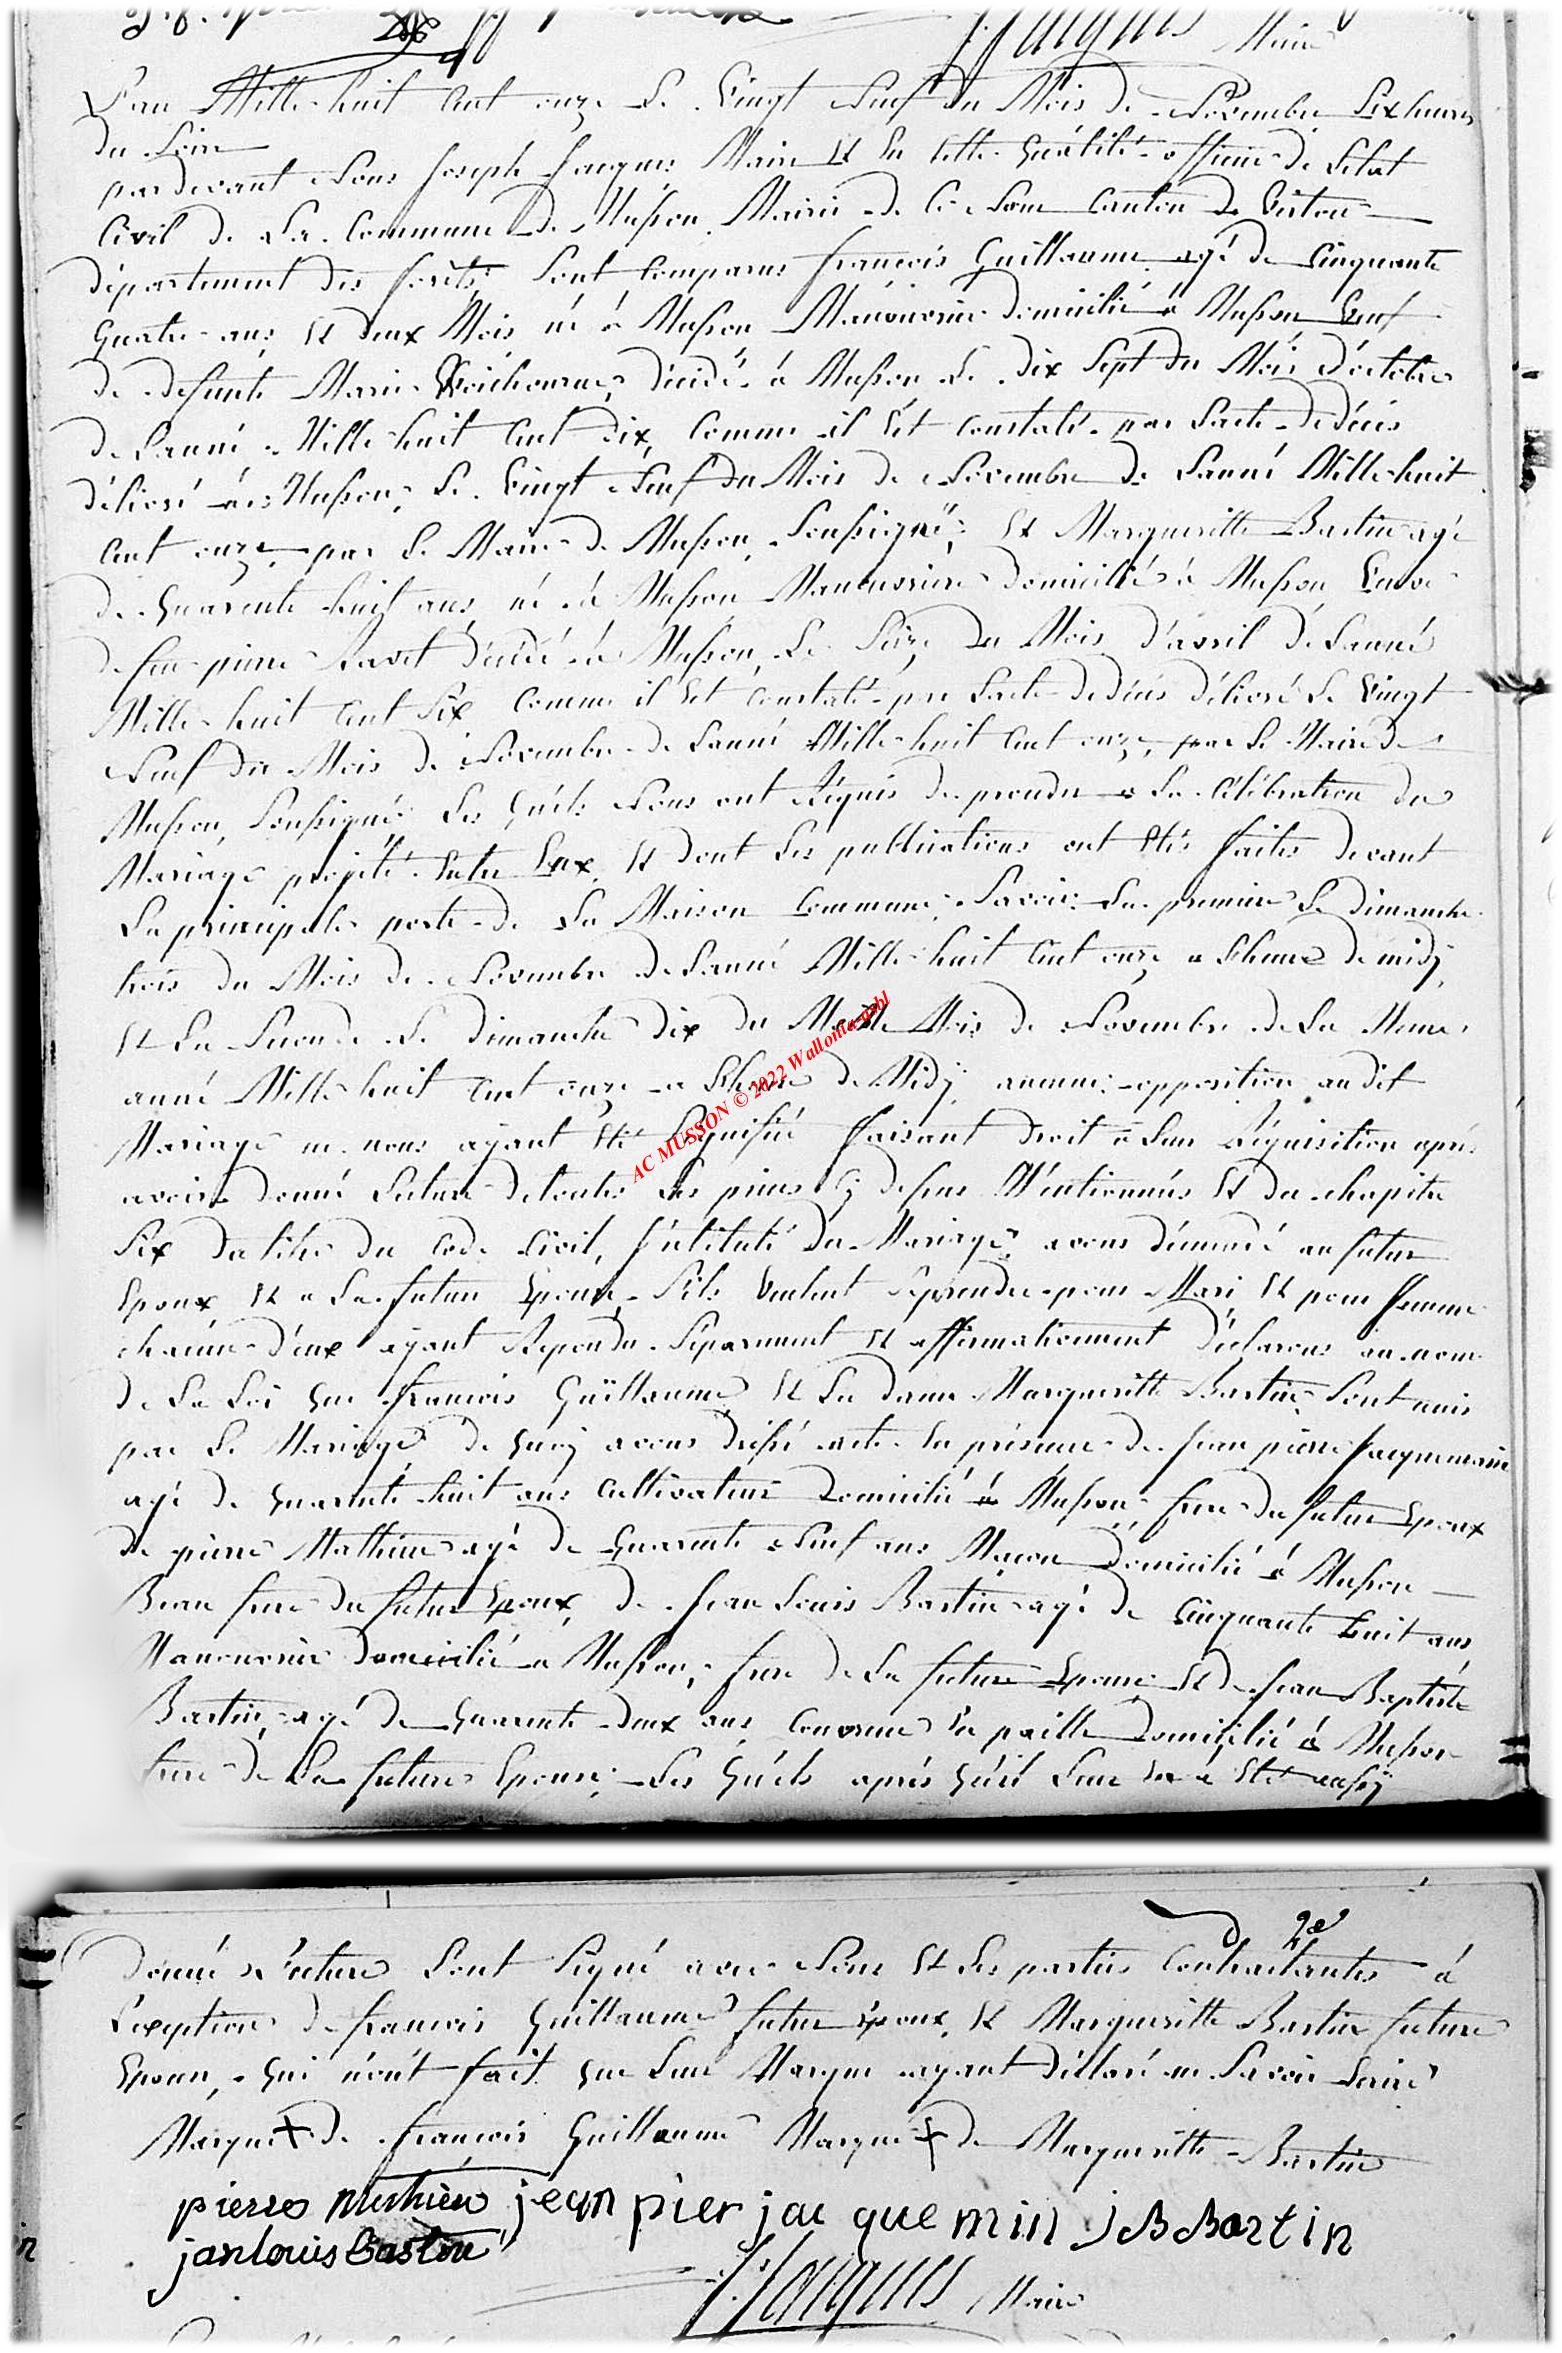 J. Jacques Maire
L'an Mille huit Cent onze Le Vingt Neuf du Mois de Novembre Six heures
du Soire
par devant Nous Joseph Jacques Maire Et En Cette Quálité officier de L'état
Civil de La Commune de Musson Mairie de Ce Nom Canton de Virton
département des forêts, Sont Comparus françois Guillaume agé de Cinquante
Quatre ans Et deux Mois né à Musson Manouvrier domicilié à Musson Veuf
de defunte Marie décédé à Musson Le dix Sept du Mois d'octobre
de Lanné Mille huit Cent dix, Comme il Est Constaté par Lacte de décès
délivré à Musson, Le Vingt Neuf du Mois de Novembre de Lanné Mille huit
Cent onze par Le Maire de Musson Soussigné; Et Margueritte Bastin agé
de Quarente huit ans né à Musson Manouvriere domicilié à Musson Veuve
de feu pierre décédé à Musson, Le Seize du Mois d'avril de Lanné
Mille huit Cent Six Comme il Est Constaté par Lacte de décès délivré Le Vingt
Neuf du Mois de Novembre de Lanné Mille huit Cent onze, par Le Maire de
Musson, Soussigné; Les Quéls Nous ont Réquis de procéder a La Célébration du
Mariage projété Entre Eux Et dont Les publications ont Etés faites devant
La principale porte de La Maison Commune; Savoir: La premiere Le dimanche
trois du Mois de Novembre de Lanné Mille huit Cent onze a Lheure de midÿ,
Et La Seconde Le dimanche dix du Mois de Novembre de La Meme
anné Mille huit Cent onze a Lheure de Midÿ, aucune opposition audit
Mariage ne nous aÿant Eté Signifié faisant droit à Leur Réquisition aprés
avoir donné Lecture de toutes Les pieces Cÿ dessus Mentionnées Et du chapitre
Six du titre du Code Civil, Intitulé du Mariage, avons démendé au futur
Epoux Et a La future Epouse, S'ils Veulent Se prendre pour Mari Et pour femme
chacun d'eux aÿant Repondu Séparément Et affirmativement déclarons au nom
de La Loi Que francois Guillaume Et La dame Margueritte Bastin Sont unis
par Le Mariage de Quoÿ avons dréssé acte En présence de Jean pierre Jacquemain
agé de Quarente huit ans Cultivateur Domicilié à Musson, frere du futur Epoux
de pierre Mathieu agé de Quarente Neuf ans Maçon Domicilié à Musson
Beau frere du futur Epoux, de Jean Louis Bastin agé de Cinquante huit ans
Manouvrier Domicilié a Musson, frere de La future Epouse Et de Jean Baptiste
Bastin, agé de Quarente deux ans Couvreur En paille Domicilié à Musson
frere de La future Epouse; Les Quéls aprés Qu'il Leur En a Eté aussÿ
2e
Donné Lecture Lont Signé avec Nous Et Les parties Contractantes à
L'exeption de francois Guillaume futur Epoux, Et Margueritte Bastin future
Epouse, Qui n'ont fait Que Leur Marque aÿant déclaré ne Savoir Ecrire
Marque de françois Guillaume Marque de Margueritte Bastin
pierre Mathieu jean pier jacquemin J B Bastin
janlouis Bastin
J. Jacques Maire
AC MUSSON © 2022 Wallonia-asbl